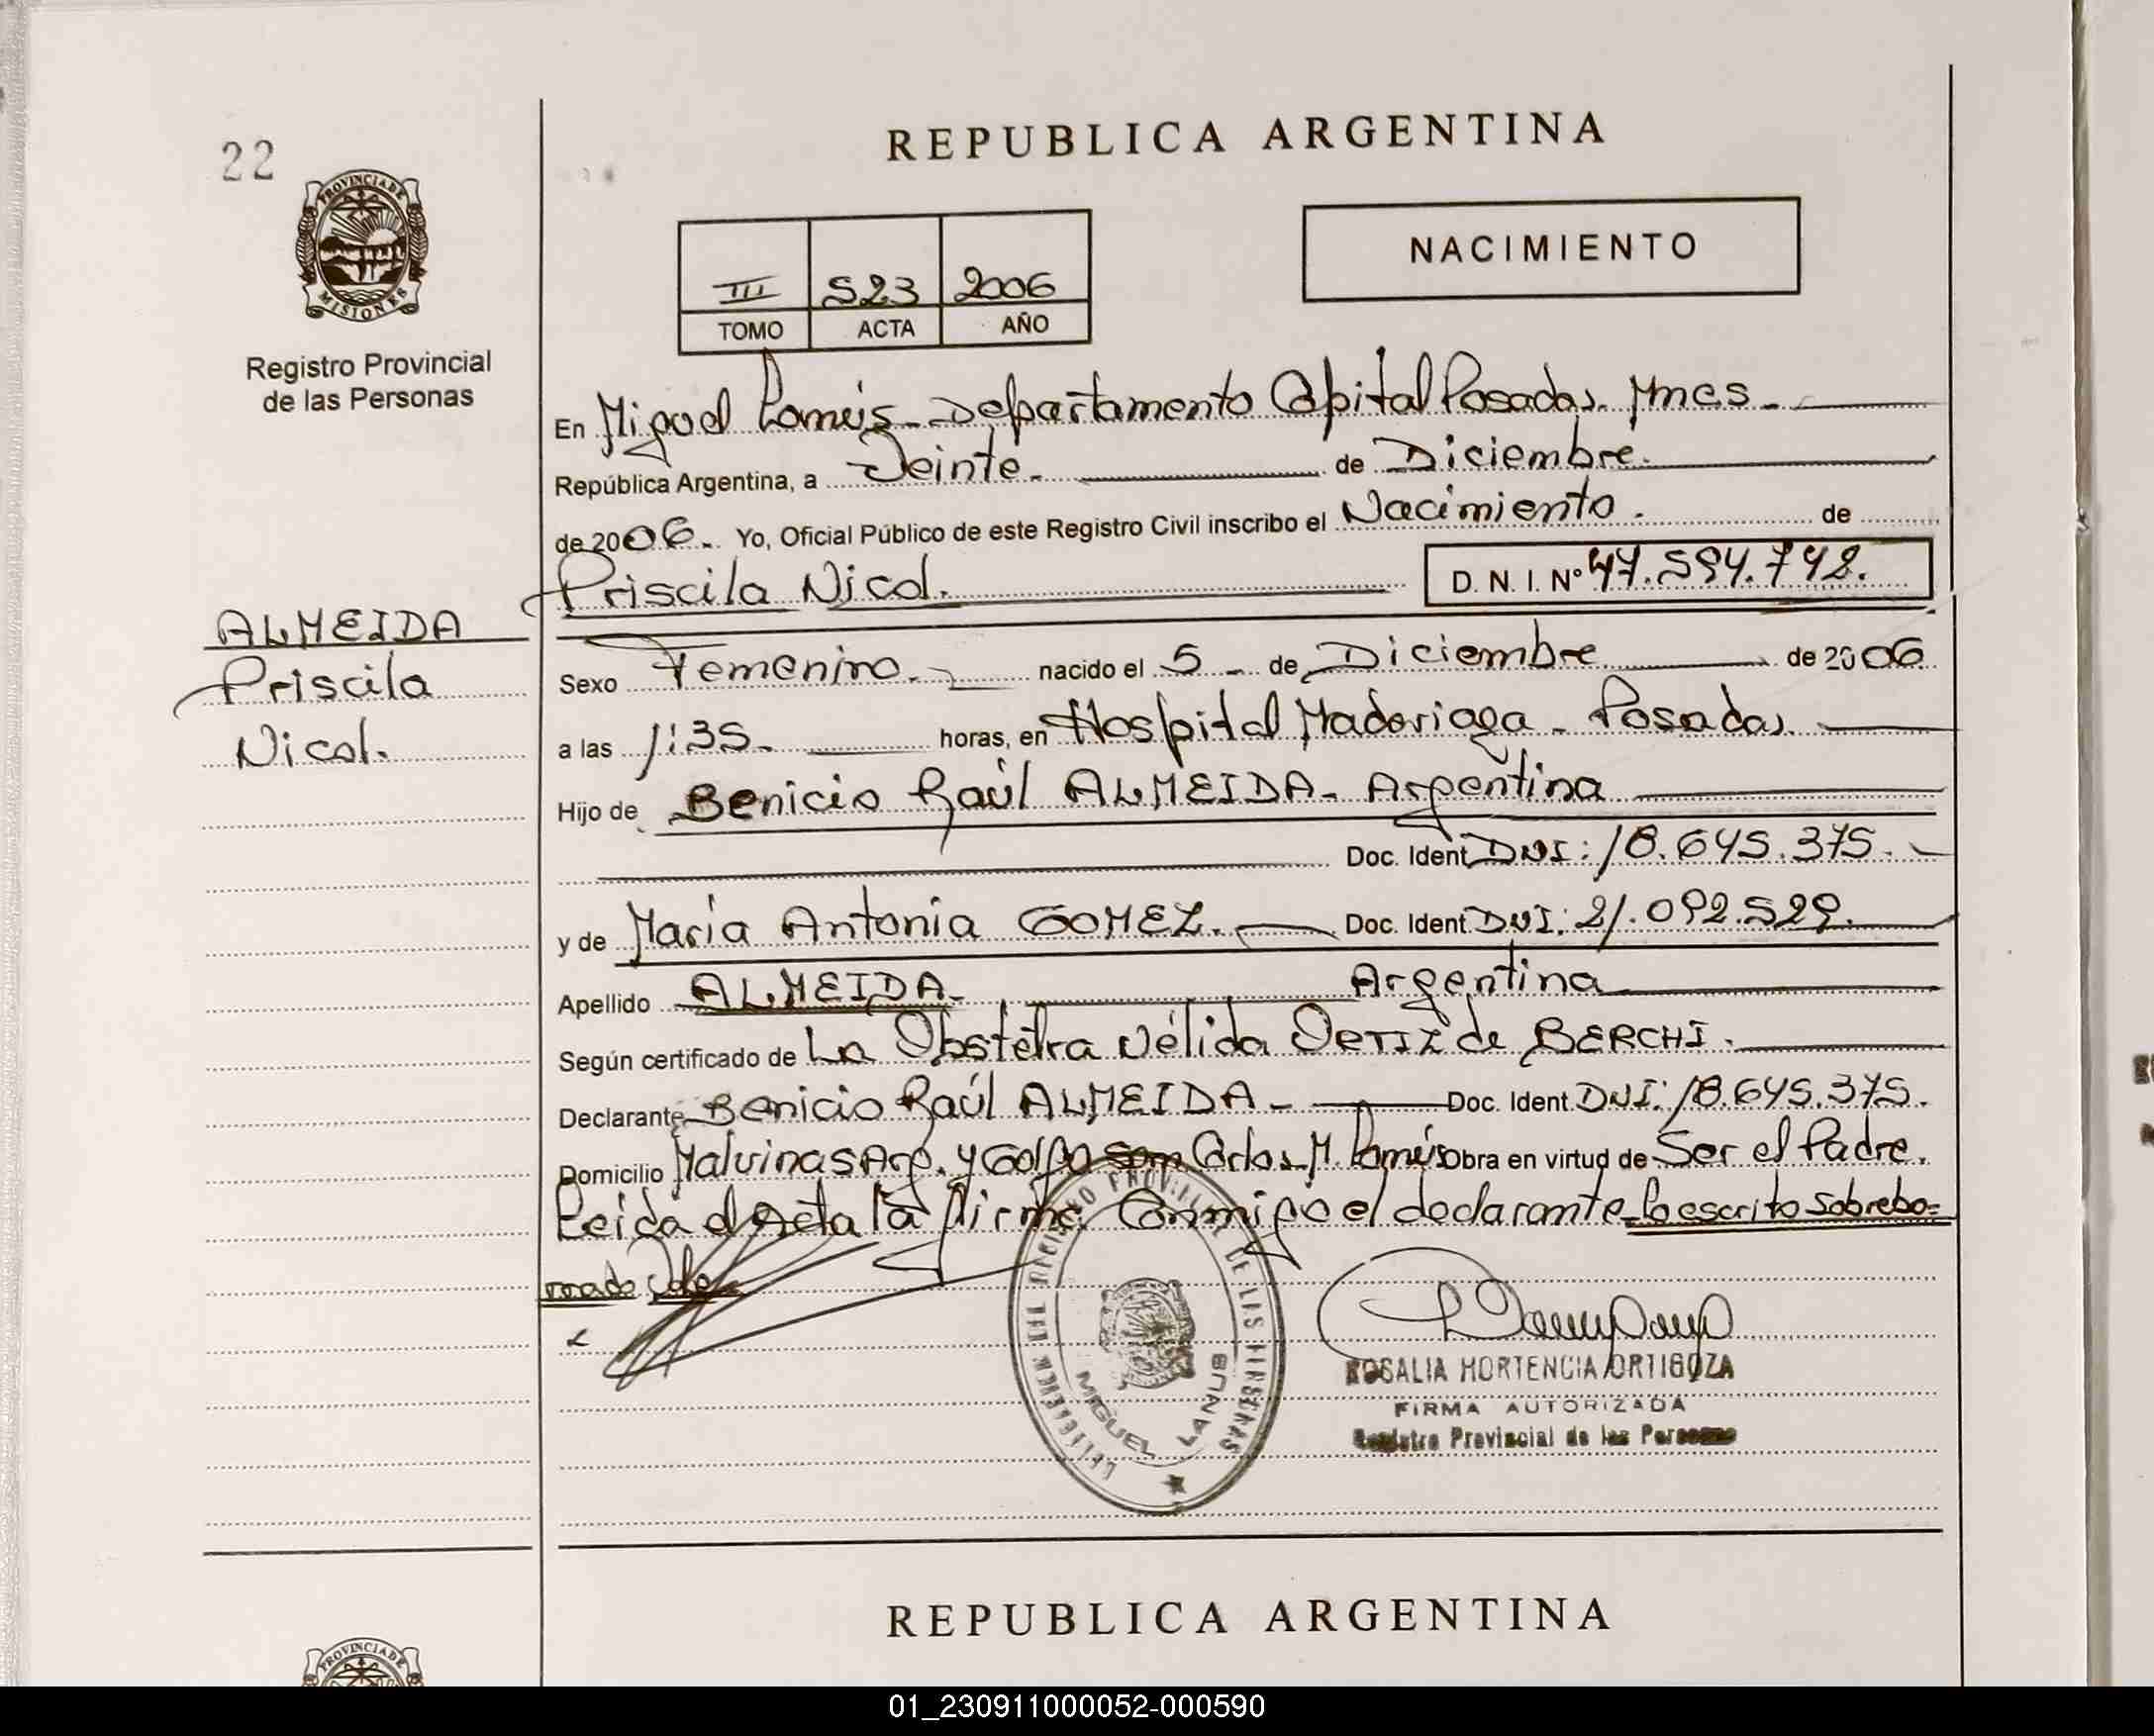 22
REPUBLICA ARGENTINA
PROVINCIA DE
MISIONES
Registro Provincial
de las Personas
NACIMIENTO
III 523 2006
TOMO ACTA AÑO
En Miguel Lanús - Departamento Capital Posadas. Mnes -
República Argentina, a Veinte. de Diciembre.
de 2006. Yo, Oficial Público de este Registro Civil inscribo el Nacimiento. de
Priscila Nicol. D. N. I. Nº 47.594.742.
ALMEIDA
Priscila
Nicol.
Sexo Femenino. nacido el 5 - de Diciembre de 2006
a las 1:35. horas, en Hospital Madariaga - Posadas.
Hijo de Benicio Raúl ALMEIDA - Argentina
Doc. Ident. DNI: 18.645.375.
y de María Antonia GOMEZ. Doc. Ident. DNI: 21.092.529.
Apellido ALMEIDA - Argentina
Según certificado de La Obstetra Nélida ORTIZ de BERCHI.
Declarante Benicio Raúl ALMEIDA - Doc. Ident. DNI: 18.645.375.
Domicilio Malvinas Arg. y Golfo San Carlos - M. Lanús Obra en virtud de Ser el Padre.
Leida el Acta la firma Conmigo el declarante - lo escrito sobrebo=
rrado Vale
REGISTRO PROVINCIAL DE LAS PERSONAS
MIGUEL LANUS
ROSALIA HORTENCIA ORTIGOZA
FIRMA AUTORIZADA
Registro Provincial de las Personas
REPUBLICA ARGENTINA
PROVINCIA DE
01_230911000052-000590